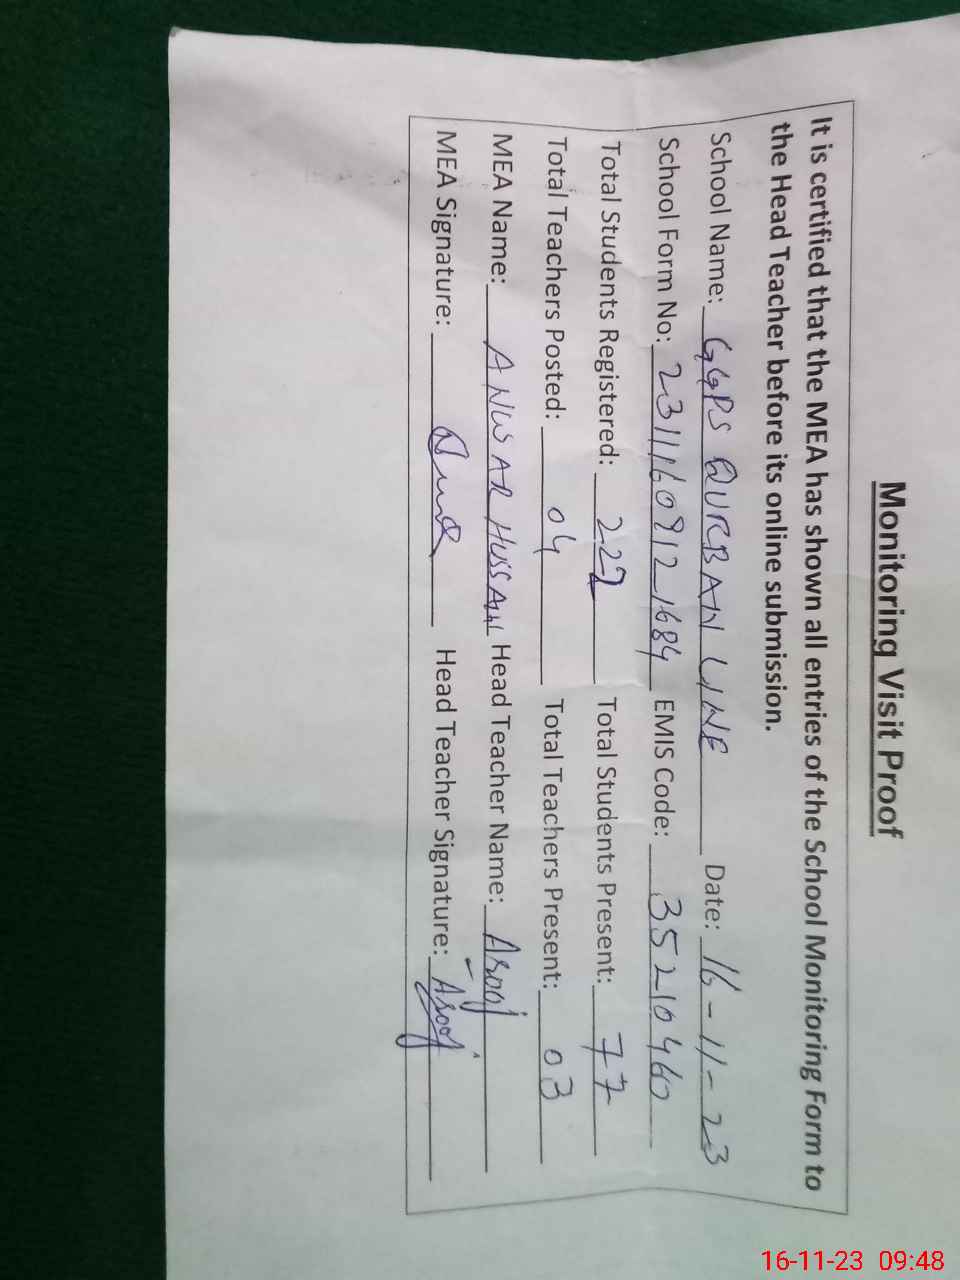 Monitoring Visit Proof
It is certified that the MEA has shown all entries of the School Monitoring Form to
the Head Teacher before its online submission.
School Name: GGPS QURBAN LINE Date: 16-11-23
School Form No: 23111609121684 EMIS Code: 35210460
Total Students Registered: 222 Total Students Present: 77
Total Teachers Posted: 04 Total Teachers Present: 03
MEA Name: ANWAR HUSSAIN Head Teacher Name: Arooj
MEA Signature: Head Teacher Signature: Arooj
16-11-23 09:48